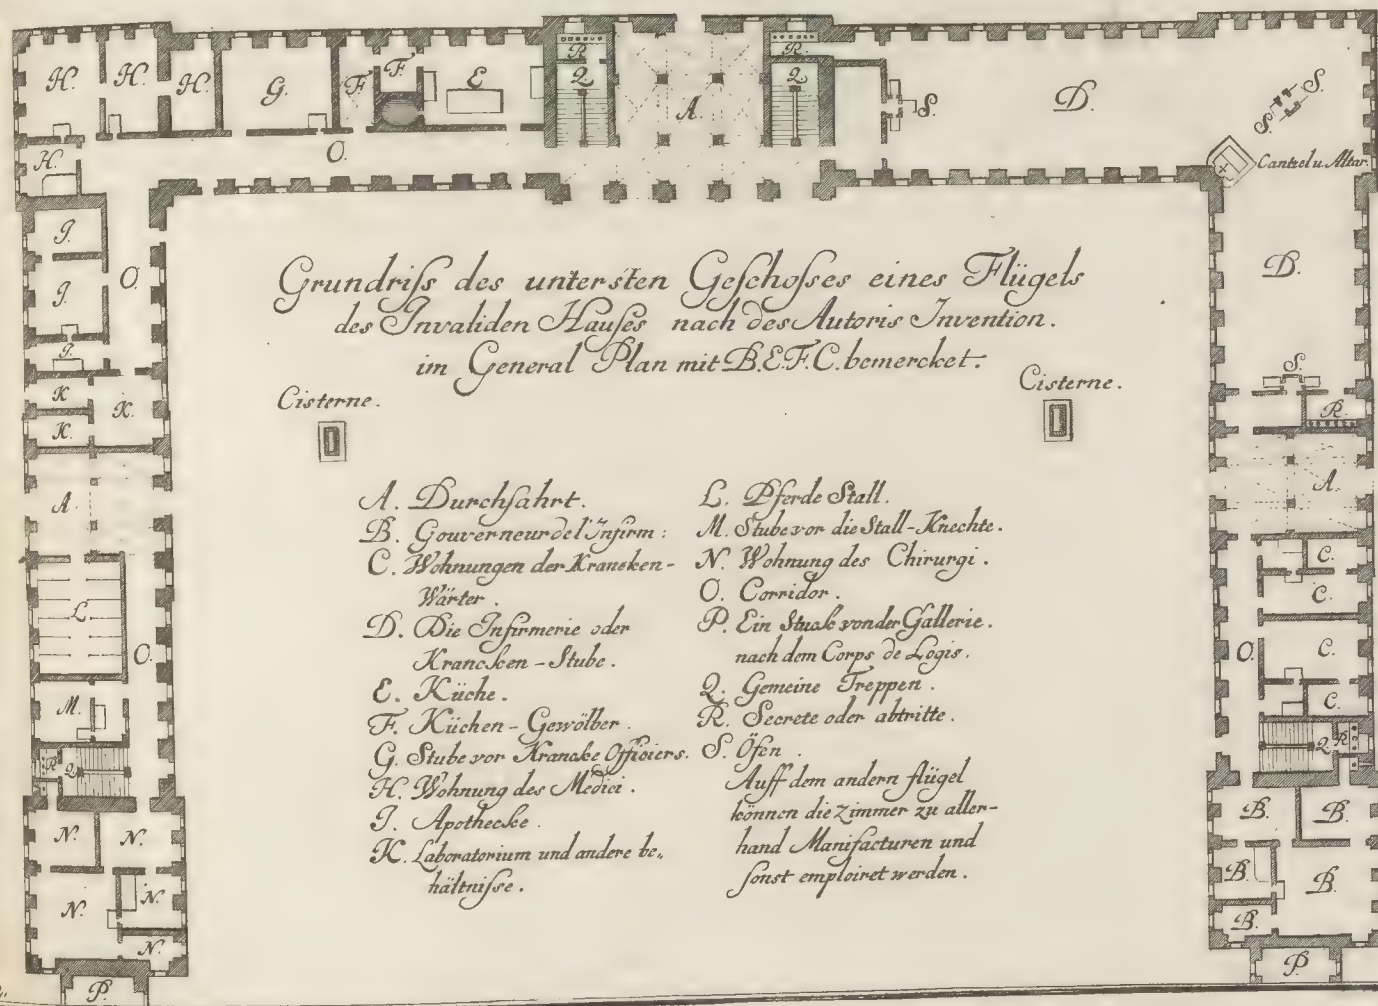 H. H. H. G. F F. E R Q. A. R Q. S. D. S. S.
H. O. Cantzel u. Altar.
J. O. D.
J.
J.
K. K. S.
K. R.
A. A.
L. C.
C.
O. O. C.
M. C.
R Q. Q R.
N. N. B. B.
N. N. B. B.
N. B.
P. P
Grundriſs des untersten Geſchoſses eines Flügels
des Invaliden Hauſes nach des Autoris Invention.
im General Plan mit B.E.F.C. bemercket.
Cisterne.
Cisterne.
A. Durchfahrt.
B. Gouverneur de l'Infirm:
C. Wohnungen der Krancken-
Wärter.
D. Die Infirmerie oder
Krancken-Stube.
E. Küche.
F. Küchen-Gewölber.
G. Stube vor Krancke Officiers.
H. Wohnung des Medici.
J. Apothecke.
K. Laboratorium und andere be„
hältniſse.
L. Pferde Stall.
M. Stube vor die Stall-Knechte.
N. Wohnung des Chirurgi.
O. Corridor.
P. Ein Stuck von der Gallerie.
nach dem Corps de Logis.
Q. Gemeine Treppen.
R. Secrete oder abtritte.
S. Öfen.
Auff dem andern flügel
können die Zimmer zu aller-
hand Manifacturen und
ſonst emploiret werden.